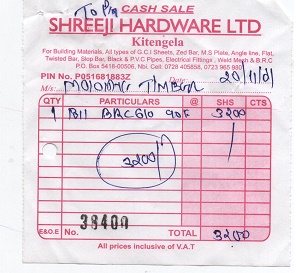 To Pin
CASH SALE
SHREEJI HARDWARE LTD
Kitengela
For Building Materials, All types of G.C.I Sheets, Zed Bar, M.S Plate, Angle line, Flat,
Twisted Bar, Stop Bar, Black & P.V.C Pipes, Electrical Fittings, Weld Mesh & B.R.C
P.O. Box 5418-00506, Nbi. Cell: 0728 405858, 0723 965 980
PIN No. P051681883Z Date: 20/11/
M/s: TIMBER
QTY PARTICULARS @ SHS CTS
1 BRC 610 90F 3200
3200/
E&O.E No. 38400 TOTAL 3200
All prices inclusive of V.A.T